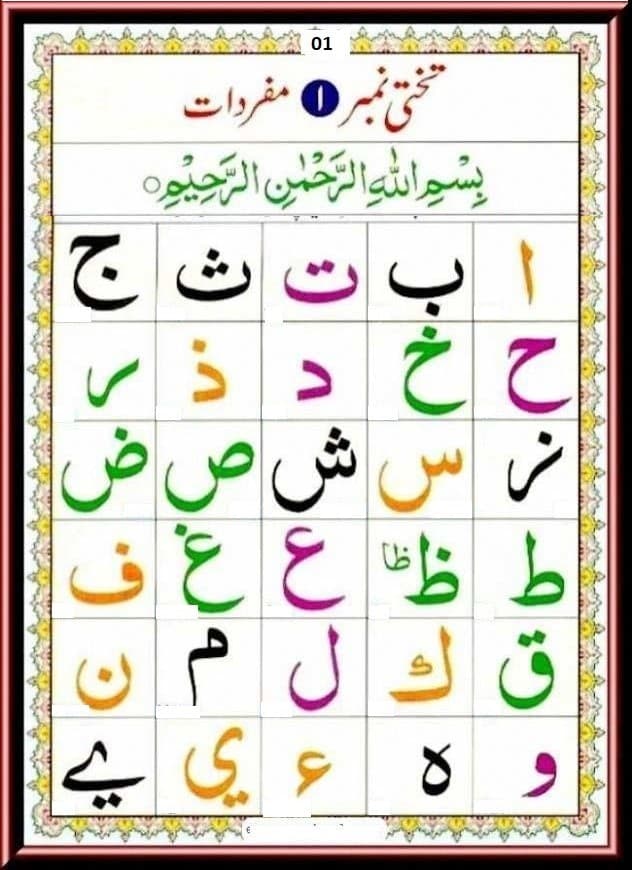 01
تختی نمبر ۱ مفردات
بِسْمِ اللّٰهِ الرَّحْمٰنِ الرَّحِيْمِ ○
ا ب ت ث ج
ح خ د ذ ر
ز س ش ص ض
ط ظ ظا ع غ ف
ق ك ل م ن
و ہ ء ي ے